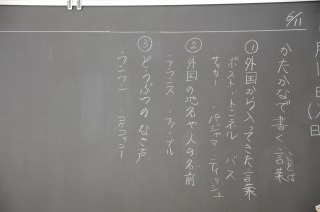 6/11
月 日
かたかなで書く言葉
ことば
① 外国から入ってきた言葉
・ポスト・トンネル バス
・サッカー パジャマ ティッシュ
② 外国の地名や人の名前
・フランス
③ どうぶつのなき声
・ワンワン